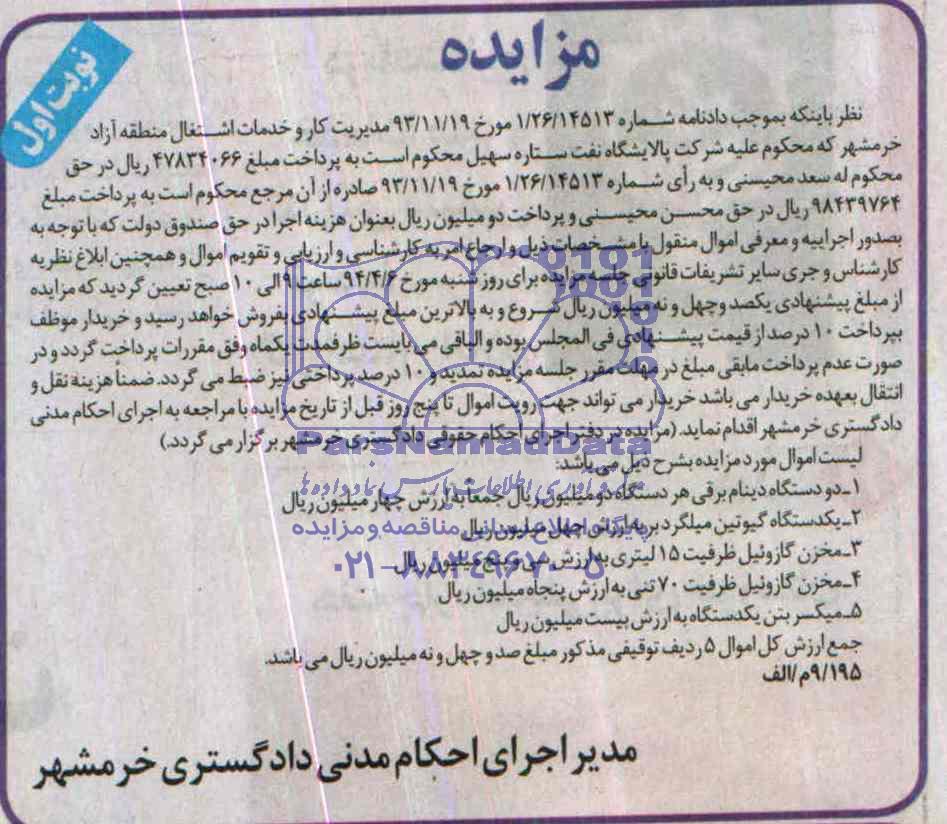 مزایده
نوبت اول
نظر باینکه بموجب دادنامه شماره ۱/۲۶/۱۴۵۱۳ مورخ ۹۳/۱۱/۱۹ مدیریت کار و خدمات اشتغال منطقه آزاد
خرمشهر که محکوم علیه شرکت پالایشگاه نفت ستاره سهیل محکوم است به پرداخت مبلغ ۴۷۸۳۴۰۶۶ ریال در حق
محکوم له سعد محیسنی و به رأی شماره ۱/۲۶/۱۴۵۱۳ مورخ ۹۳/۱۱/۱۹ صادره از آن مرجع محکوم است به پرداخت مبلغ
۹۸۴۳۹۷۶۴ ریال در حق محسن محیسنی و پرداخت دو میلیون ریال بعنوان هزینه اجرا در حق صندوق دولت که با توجه به
بصدور اجراییه و معرفی اموال منقول با مشخصات ذیل و ارجاع امر به کارشناسی و ارزیابی و تقویم اموال و همچنین ابلاغ نظریه
کارشناس و جری سایر تشریفات قانونی جلسه مزایده برای روز شنبه مورخ ۹۴/۴/۶ ساعت ۹ الی ۱۰ صبح تعیین گردید که مزایده
از مبلغ پیشنهادی یکصد وچهل و نه میلیون ریال شروع و به بالاترین مبلغ پیشنهادی بفروش خواهد رسید و خریدار موظف
بپرداخت ۱۰ درصد از قیمت پیشنهادی فی المجلس بوده و الباقی می بایست ظرفمدت یکماه وفق مقررات پرداخت گردد و در
صورت عدم پرداخت مابقی مبلغ در مهلت مقرر جلسه مزایده تمدید و ۱۰ درصد پرداختی نیز ضبط می گردد. ضمناً هزینه نقل و
انتقال بعهده خریدار می باشد خریدار می تواند جهت رویت اموال تا پنج روز قبل از تاریخ مزایده با مراجعه به اجرای احکام مدنی
دادگستری خرمشهر اقدام نماید. (مزایده در دفتر اجرای احکام حقوقی دادگستری خرمشهر برگزار می گردد.)
لیست اموال مورد مزایده بشرح ذیل می باشد:
۱ـ دو دستگاه دینام برقی هر دستگاه دو میلیون ریال جمعاً به ارزش چهار میلیون ریال
۲ـ یکدستگاه گیوتین میلگرد بر به ارزش چهل میلیون ریال
۳ـ مخزن گازوئیل ظرفیت ۱۵ لیتری به ارزش سی و پنج میلیون ریال
۴ـ مخزن گازوئیل ظرفیت ۷۰ تنی به ارزش پنجاه میلیون ریال
۵ـ میکسر بتن یکدستگاه به ارزش بیست میلیون ریال
جمع ارزش کل اموال ۵ ردیف توقیفی مذکور مبلغ صد و چهل و نه میلیون ریال می باشد.
۹/۱۹۵م/الف
مدیر اجرای احکام مدنی دادگستری خرمشهر
ParsNamadData
مرکز فرآوری اطلاعات پارس نماد داده ها
پایگاه اطلاع رسانی مناقصه و مزایده
۰۲۱-۸۸۳۴۹۶۷۰-۵